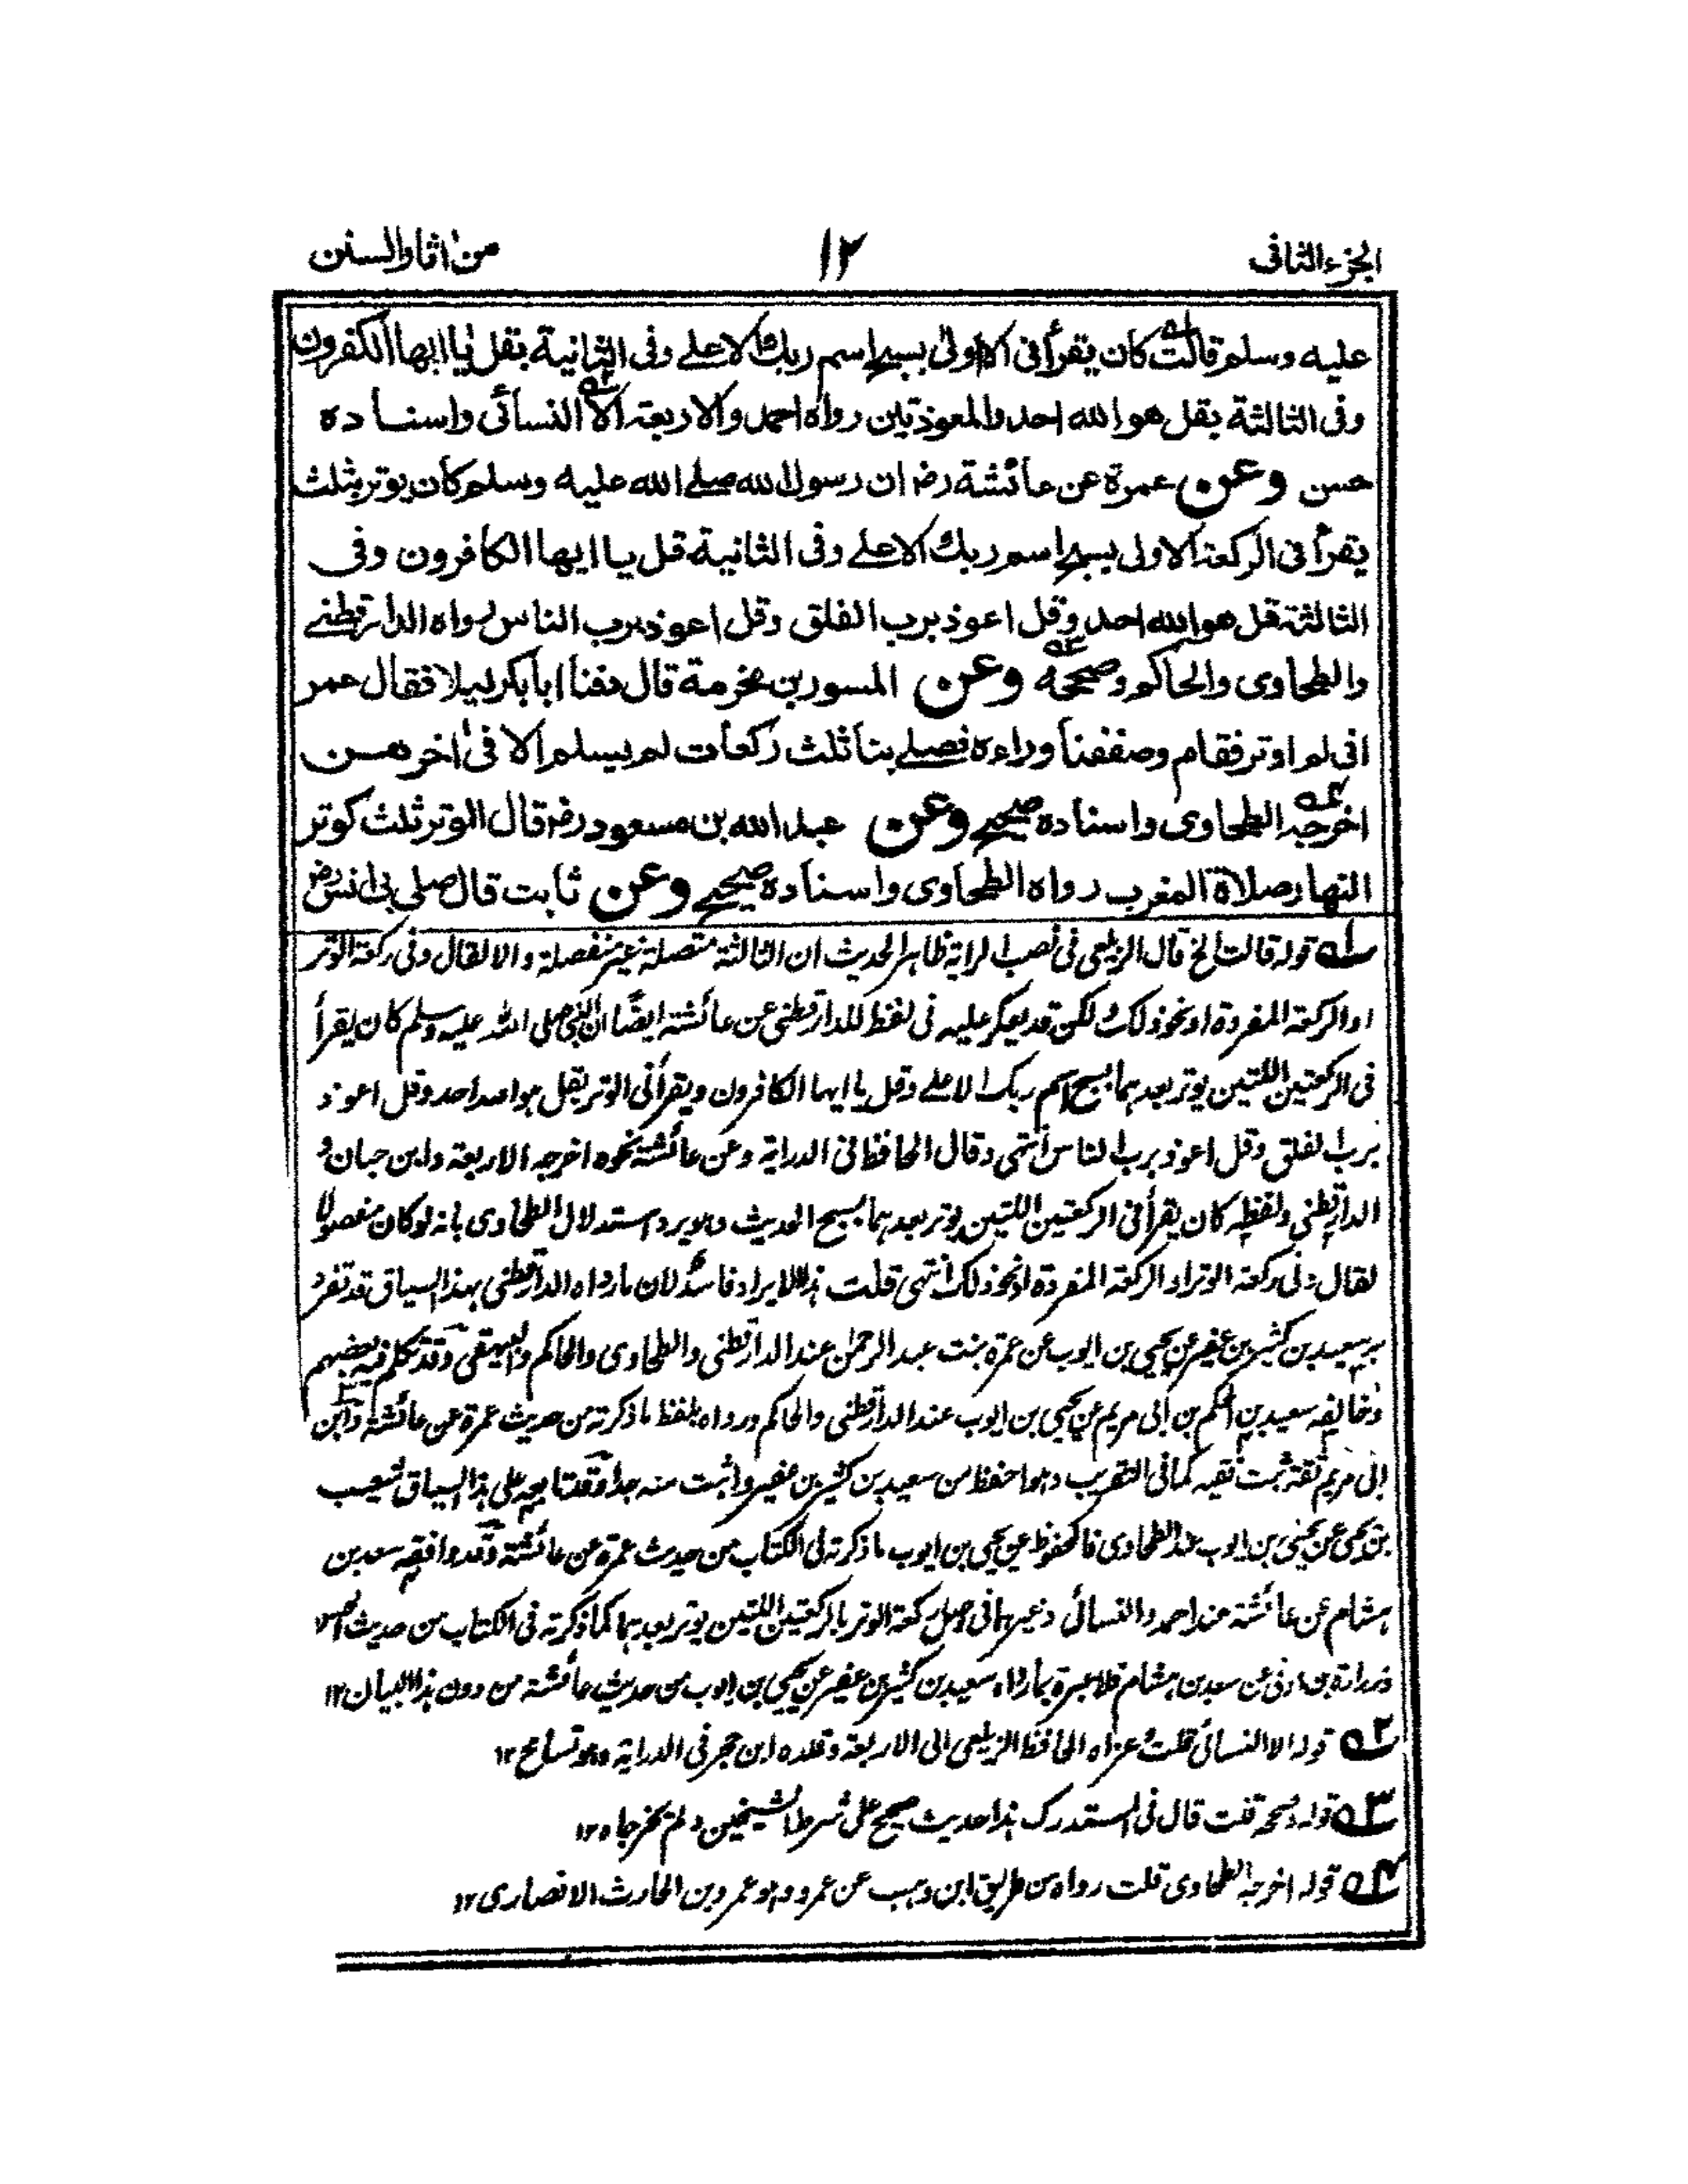 الجزء الثانی ۱۲ من اٰثار السنن
علیه وسلم قالت کان یقرأ فی الاولیٰ بسبح اسم ربك الاعلے وفی الثانیة بقل یٰا ایها الکٰفرون
وفی الثالثة بقل هو الله احد والمعوذتین رواه احمد والاربعة الا النسائی واسناده
حسن وعن عمرة عن عائشة رض ان رسول الله صلے الله علیه وسلم کان یوتر بثلث
یقرأ فی الرکعة الاولی بسبح اسم ربك الاعلے وفی الثانیة قل یا ایها الکافرون وفی
الثالثة قل هو الله احد وقل اعوذ برب الفلق وقل اعوذ برب الناس رواه الدارقطنے
والطحاوی والحاکم وصححه وعن المسور بن مخرمة قال دفنا ابا بکر لیلا فقال عمر
انی لم اوتر فقام وصففنا وراءه فصلے بنا ثلث رکعات لم یسلم الا فی اٰخرهن
اخرجه الطحاوی واسناده صحیح وعن عبد الله بن مسعود رض قال الوتر ثلث کوتر
النهار صلاة المغرب رواه الطحاوی واسناده صحیح وعن ثابت قال صلی بی انس رض
۱ قوله قالت الخ قال الزیلعی فی نصب الرایة ظاهر الحدیث ان الثالثة متصلة غیر منفصلة والا لقال وفی رکعة الوتر
او الرکعة المفردة او نحو ذلك لکن قد یعکر علیه فی لفظ للدارقطنی عن عائشة ایضًا ان النبی صلی الله علیه وسلم کان یقرأ
فی الرکعتین اللتین یوتر بعدهما بسبح اسم ربك الاعلے وقل یا ایها الکافرون ویقرأ فی الوتر بقل هو الله احد وقل اعوذ
برب الفلق وقل اعوذ برب الناس انتهی وقال الحافظ فی الدرایة وعن عائشة نحوه اخرجه الاربعة وابن حبان و
الدارقطنی ولفظه کان یقرأ فی الرکعتین اللتین یوتر بعدهما بسبح الحدیث وبه یرد استدلال الطحاوی بانه لو کان مفصولا
لقال وفی رکعة الوتر او الرکعة المفردة او نحو ذلك انتهی قلت هذا الایراد فاسد لان ما رواه الدارقطنی بهذا السیاق قد تفرد
به سعید بن کثیر بن عفیر عن یحیی بن ایوب عن عمرة بنت عبد الرحمٰن عند الدارقطنی والطحاوی والحاکم والبیهقی وقد تکلم فیه بعضهم
وخالفه سعید بن الحکم بن ابی مریم عن یحیی بن ایوب عند الدارقطنی والحاکم ورواه بلفظ ما ذکرته من حدیث عمرة عن عائشة وابن
ابی مریم ثقة ثبت فقیه کما فی التقریب وهو احفظ من سعید بن کثیر بن عفیر واثبت منه جدا وقد تابعه علی هذا السیاق شعیب
بن یحیی عن یحیی بن ایوب عند الطحاوی فالمحفوظ عن یحیی بن ایوب ما ذکرته فی الکتاب من حدیث عمرة عن عائشة وقد وافقه سعد بن
هشام عن عائشة عند احمد والنسائی وغیرهما فی وصل رکعة الوتر بالرکعتین اللتین یوتر بعدهما کما ذکرته فی الکتاب من حدیث
زرارة بن اوفی عن سعد بن هشام فلا عبرة بما رواه سعید بن کثیر بن عفیر عن یحیی بن ایوب من حدیث عائشة من دون هذا البیان ۱۲
۲ قوله الا النسائی قلت عزاه الحافظ الزیلعی الی الاربعة وقلده ابن حجر فی الدرایة وهو تسامح ۱۲
۳ قوله وصححه قلت قال فی المستدرک هذا حدیث صحیح علی شرط الشیخین ولم یخرجاه ۱۲
۴ قوله اخرجه الطحاوی قلت رواه من طریق ابن وهب عن عمرو وهو عمرو بن الحارث الانصاری ۱۲